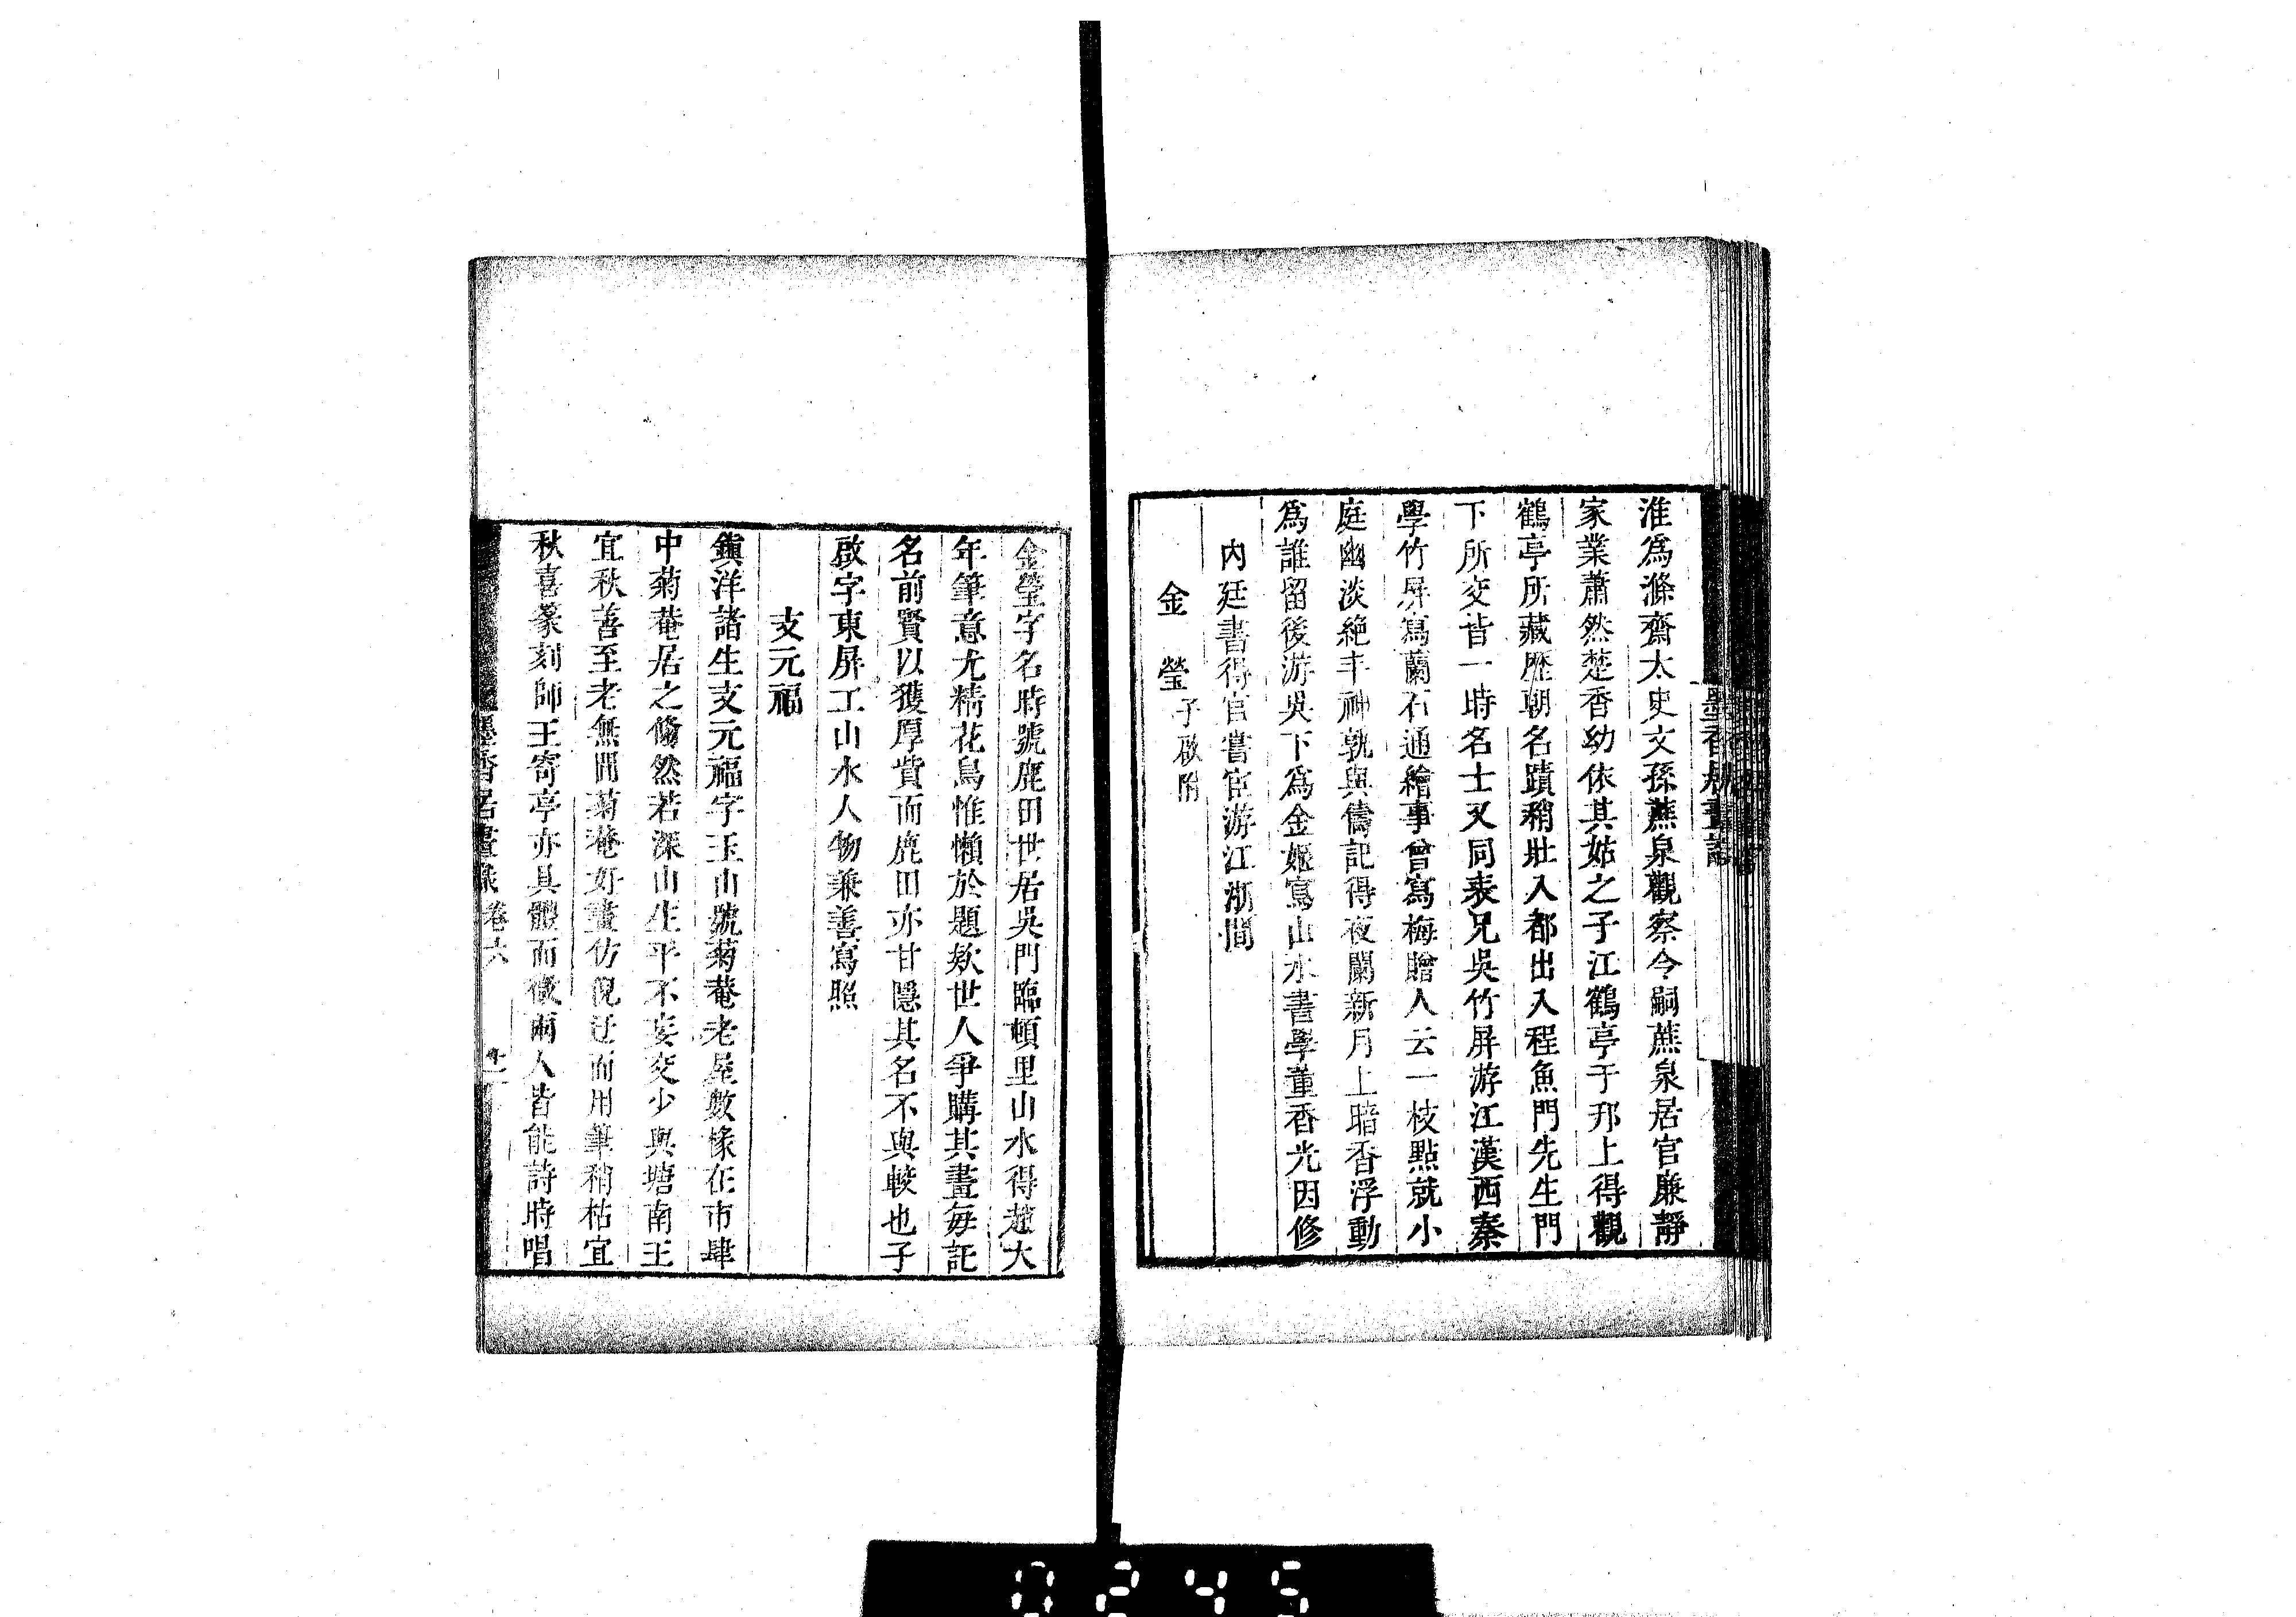 淮爲滌齋太史文孫蕉泉觀察令嗣蕉泉居官廉靜
家業蕭然楚香幼依其姑之子江鶴亭于邗上得觀
鶴亭所藏歷朝名蹟稍壯入都出入程魚門先生門
下所交皆一時名士又同表兄吳竹屏游江漢西秦
學竹屏寫蘭石通繪事曾寫梅贈人云一枝點就小
庭幽淡絶丰神孰與儔記得夜闌新月上暗香浮動
爲誰留後游吳下爲金姬寫山水書學董香光因修
內廷書得官嘗宦游江浙間
金瑩子啟附
金瑩字名時號鹿田世居吳門臨頓里山水得趙大
年筆意尤精花鳥惟懶於題款世人爭購其畫每託
名前賢以獲厚貲而鹿田亦甘隱其名不與較也子
啟字東屏工山水人物兼善寫照
支元福
鎭洋諸生支元福字玉山號菊菴老屋數椽在市肆
中菊菴居之翛然若深山生平不妄交少與塘南王
宜秋善至老無間菊菴好畫仿倪迂而用筆稍枯宜
秋喜篆刻師王寄亭亦具體而微兩人皆能詩時唱
墨香居畫識
墨香居畫識 卷六
0245